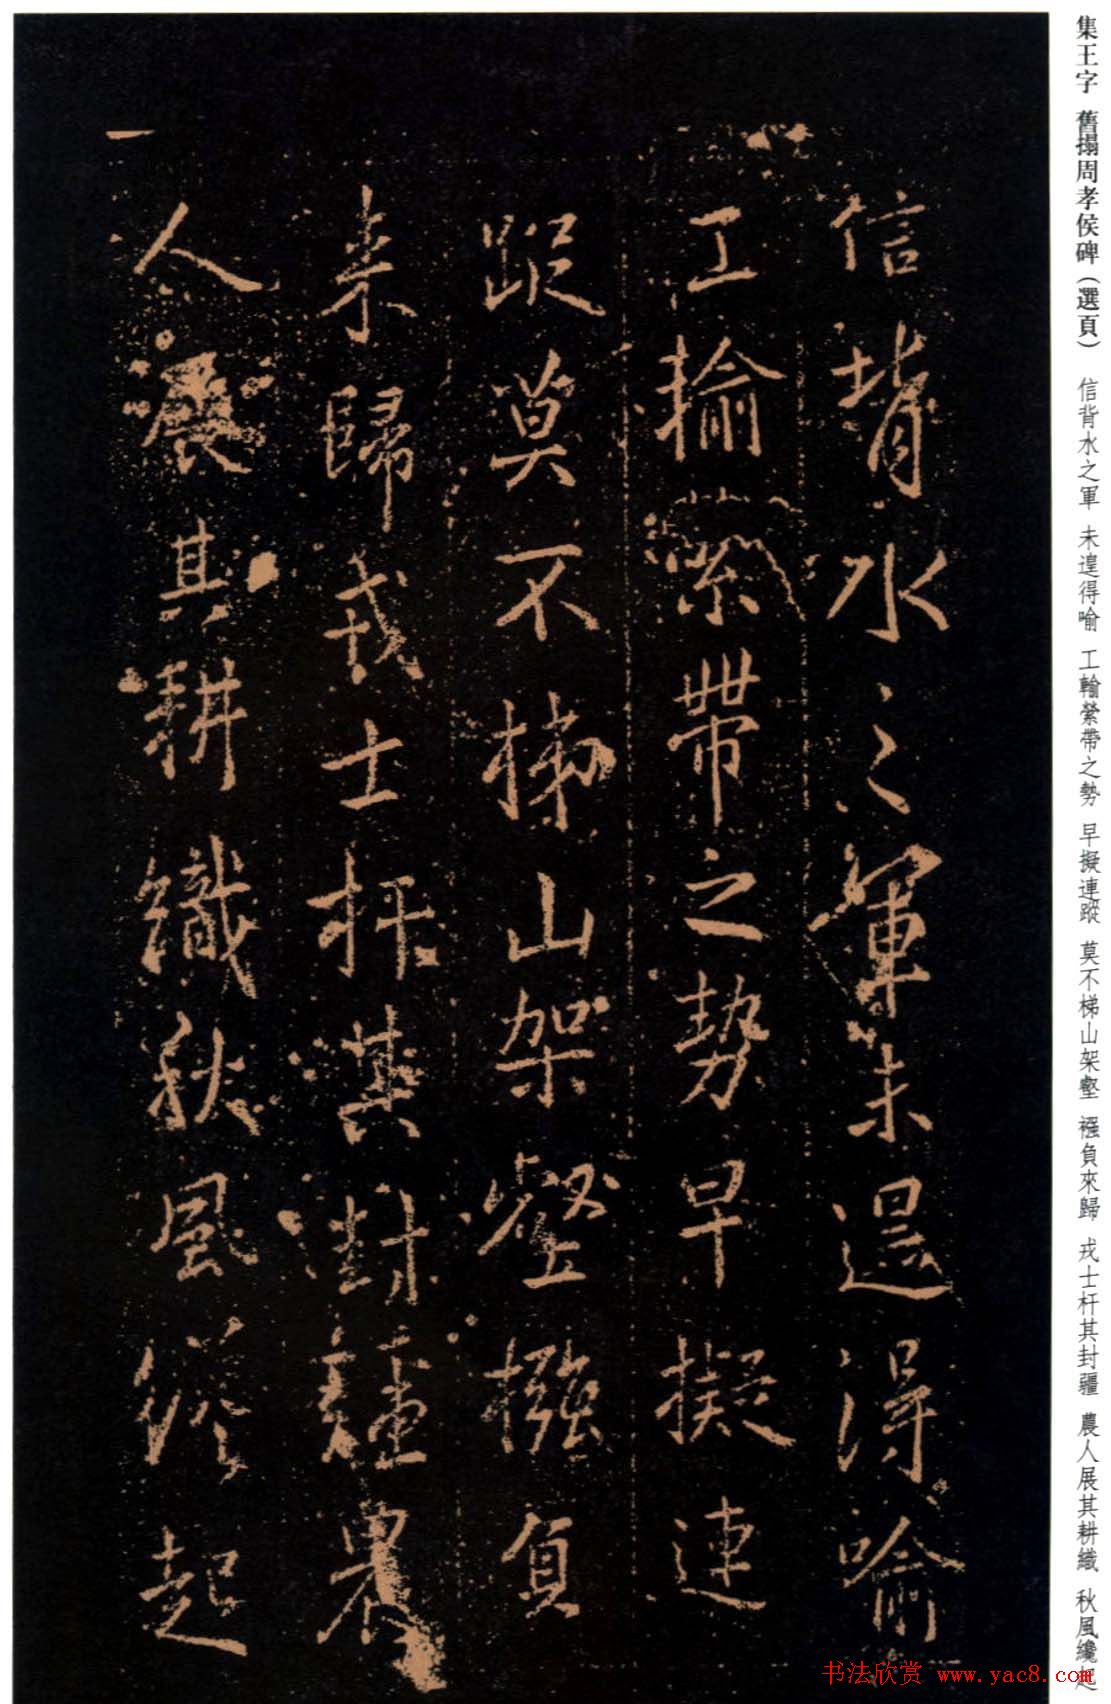 集王字 舊搨周孝侯碑（選頁） 信背水之軍 未遑得喻 工輸縈帶之勢 早擬連蹤 莫不梯山架壑 襁負來歸 戎士杆其封疆 農人展其耕織 秋風纔起
信背水之軍未遑得喻
工輸縈帶之勢早擬連
蹤莫不梯山架壑襁負
来歸戎士杆其封疆農
人展其耕織秋風纔起
书法欣赏 www.yac8.com